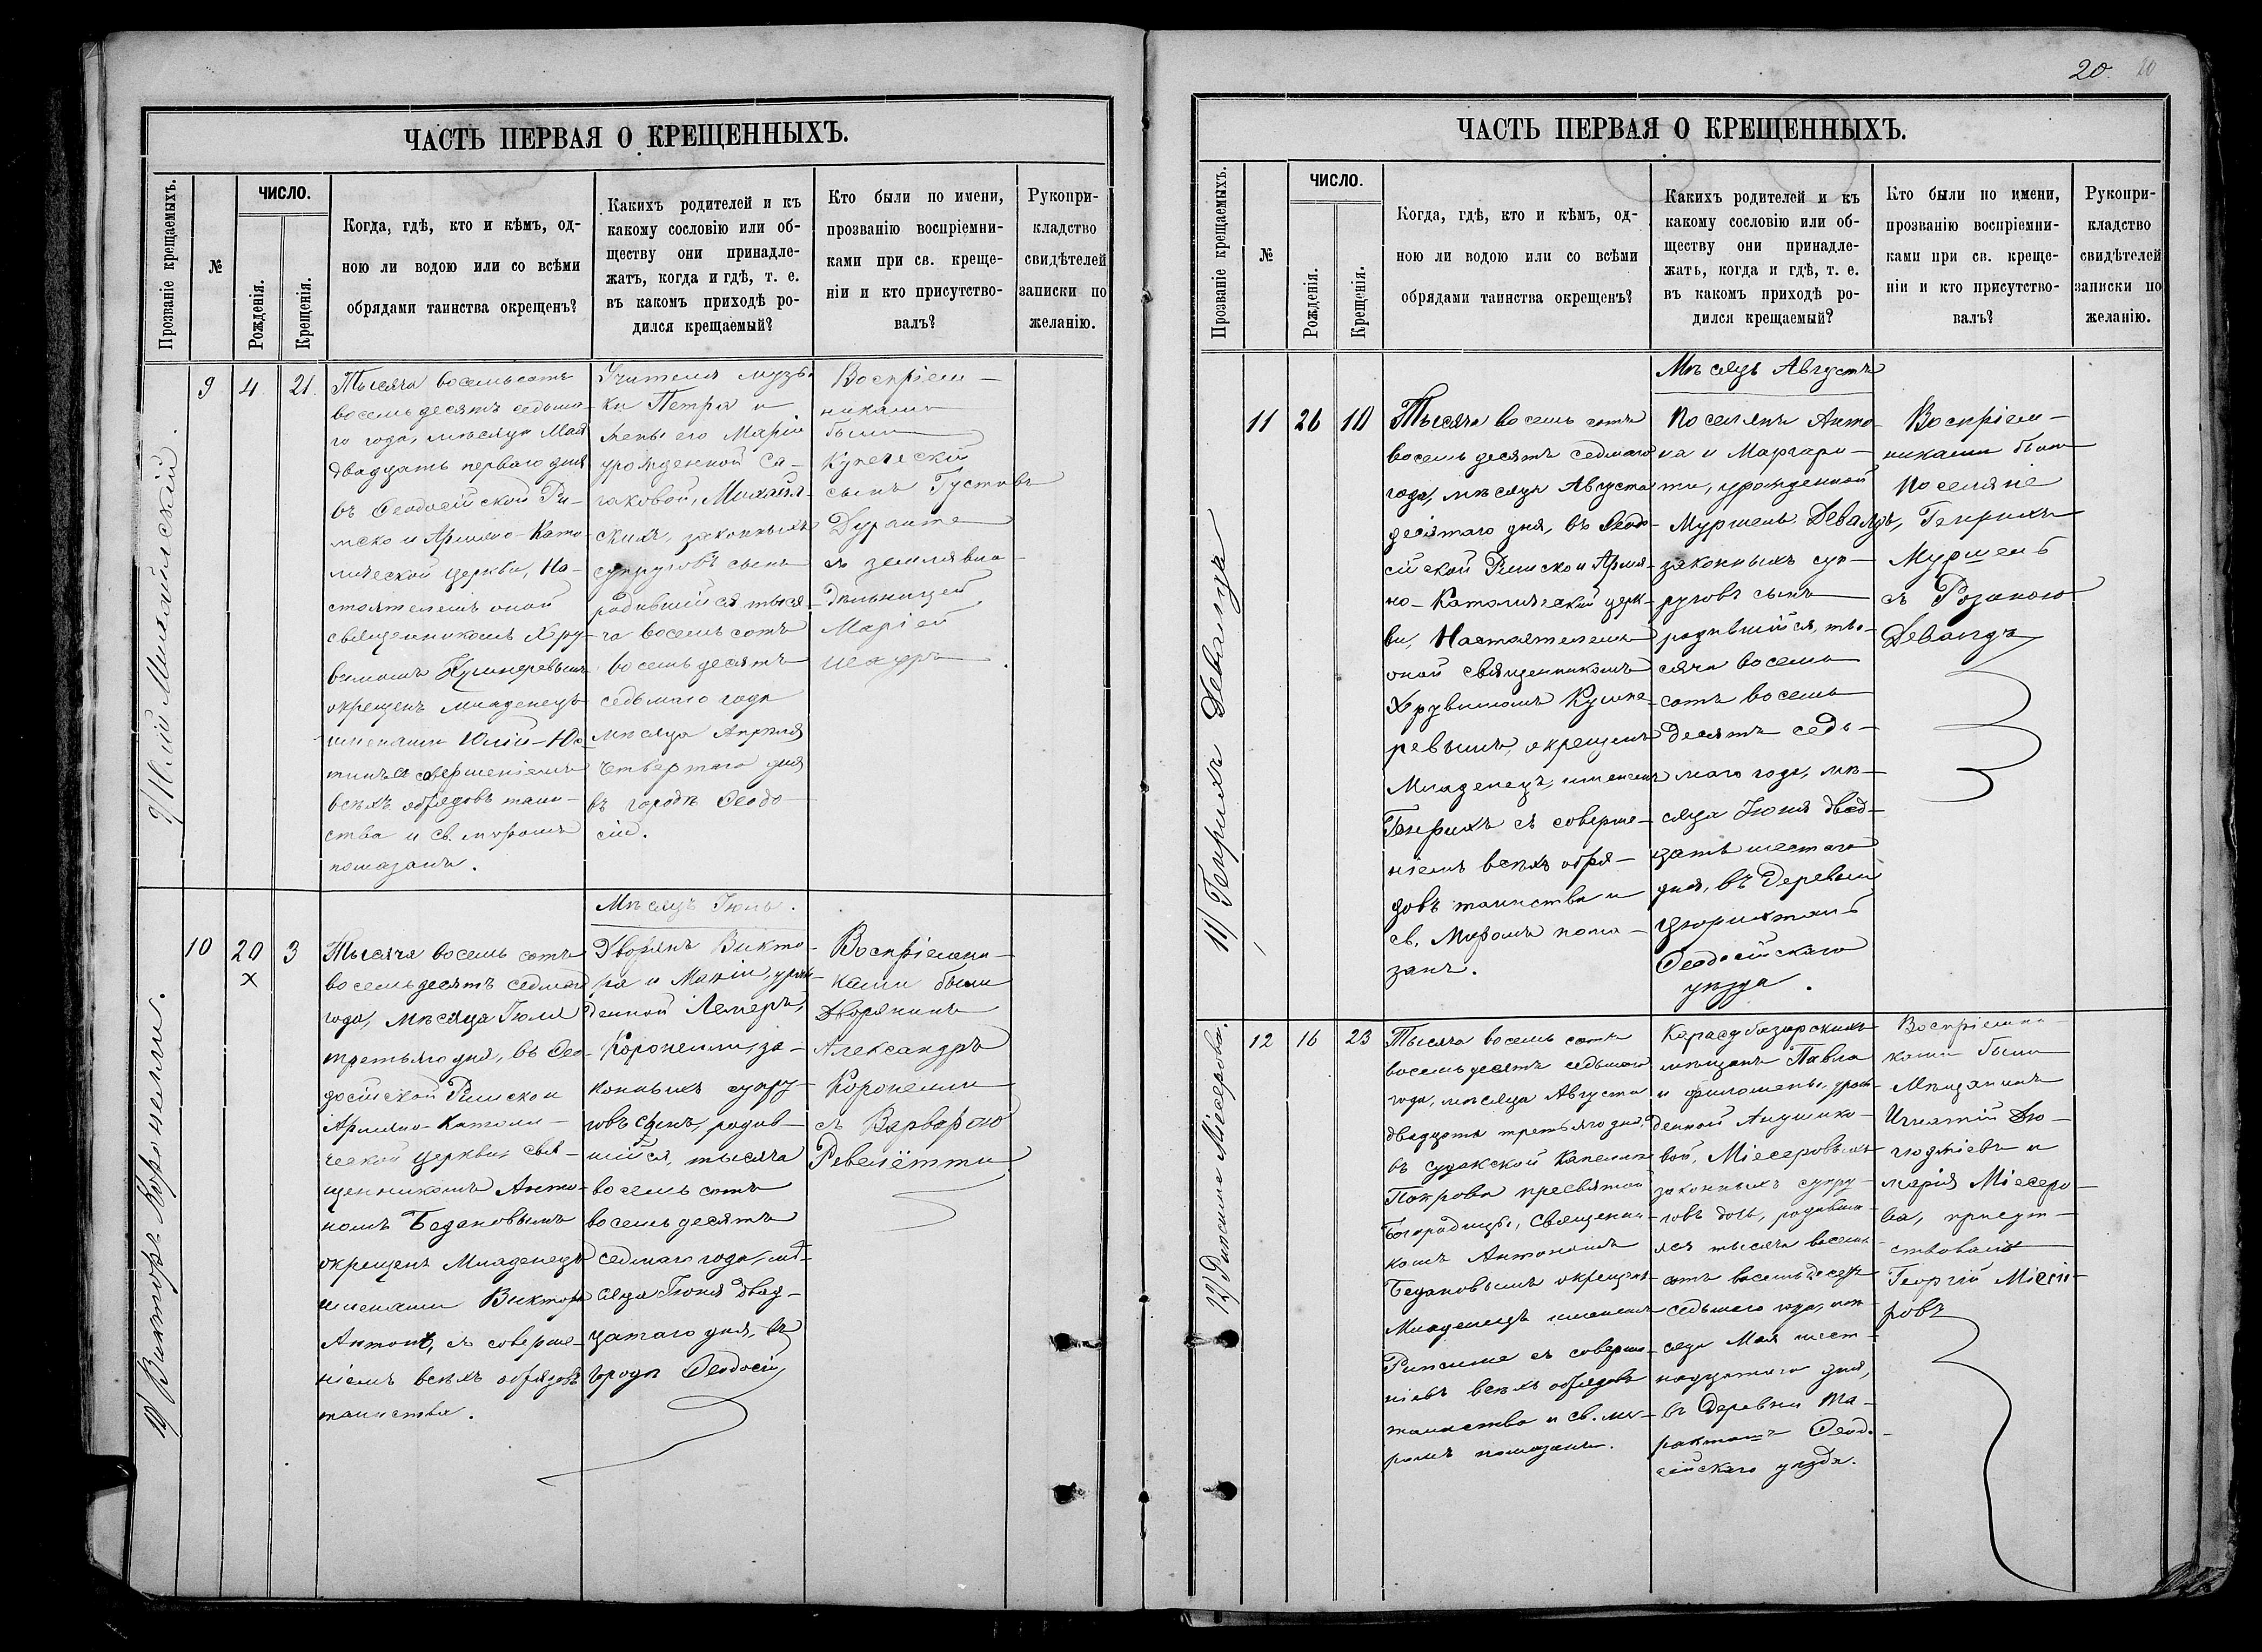 ЧАСТЬ ПЕРВАЯ О КРЕЩЕННЫХЪ.
Прозваніе крещаемыхъ.
№
ЧИСЛО.
Рожденія.
Крещенія.
Когда, гдѣ, кто и кѣмъ, од-
ною ли водою или со всѣми
обрядами таинства окрещенъ?
Какихъ родителей и къ
какому сословію или об-
ществу они принадле-
жатъ, когда и гдѣ, т. е.
въ какомъ приходѣ ро-
дился крещаемый?
Кто были по имени,
прозванію воспріемни-
ками при св. креще-
ніи и кто присутство-
валъ?
Рукопри-
кладство
свидѣтелей
записки по
желанію.
9/ Юлій Михайлскій.
9
4
21.
Тысяча восемьсотъ
восемьдесятъ седьма-
го года, мѣсяца Мая
двадцать перваго дня
въ Ѳеодосійской Ри-
мско и Армяно-Като-
лической церкви, На-
стоятелемъ оной
священникомъ Хру-
вимомъ Кушнеревымъ
окрещенъ младенецъ
именами Юлій-
съ совершеніемъ
всѣхъ обрядовъ таин-
ства и св. мѵромъ
помазанъ.
Учителя музы-
ки Петра и
жены его Маріи
урожденной Са-
гаковой, Михайл-
скихъ, законныхъ
супруговъ сынъ
родившійся тыся-
ча восемь сотъ
восемьдесятъ
седьмаго года
мѣсяца Апрѣля
четвертаго дня
въ городѣ Ѳеодо-
сіи.
Воспріем-
никами
были
Купеческій
сынъ Густавъ
Дуранте
съ землевла-
дѣльницей
Маріей
10/ Викторъ Коронелли.
10
20
x
3
Мѣсяцъ Іюль.
Тысяча восемь сотъ
восемьдесятъ седмаго
года, мѣсяца Іюля
третьяго дня, въ Ѳео-
досійской Римско и
Армяно-Католи-
ческой церкви, свя-
щенникомъ Анто-
номъ Бедановымъ
окрещенъ Младенецъ
именами Викторъ
Антонъ, съ соверше-
ніемъ всѣхъ обрядовъ
таинства.
Дворянъ Викто-
ра и Маріи, урож-
денной Лемеръ,
Коронелли, за-
конныхъ супру-
говъ сынъ, родив-
шійся, тысяча
восемь сотъ
восемьдесятъ
седмаго года, мѣ-
сяца Іюня двад-
цатаго дня, въ
городѣ Ѳеодосіи
Воспріемни-
ками были
Дворянинъ
Александръ
Коронелли
съ Варварою
Ревелётти
20. 20
ЧАСТЬ ПЕРВАЯ О КРЕЩЕННЫХЪ.
Прозваніе крещаемыхъ.
№
ЧИСЛО.
Рожденія.
Крещенія.
Когда, гдѣ, кто и кѣмъ, од-
ною ли водою или со всѣми
обрядами таинства окрещенъ?
Какихъ родителей и къ
какому сословію или об-
ществу они принадле-
жатъ, когда и гдѣ, т. е.
въ какомъ приходѣ ро-
дился крещаемый?
Кто были по имени,
прозванію воспріемни-
ками при св. креще-
ніи и кто присутство-
валъ?
Рукопри-
кладство
свидѣтелей
записки по
желанію.
11/ Генрихъ Девальдъ
11
26
10
Мѣсяцъ Августъ
Тысяча восемь сотъ
восемьдесятъ седмаго
года, мѣсяца Августа
десятаго дня, въ Ѳеодо-
сійской Римско и Армя-
но-Католической церк-
ви, Настоятелемъ
оной священникомъ
Хрувимомъ Кушне-
ревымъ, окрещенъ
Младенецъ, именемъ
Генрихъ съ соверше-
ніемъ всѣхъ обря-
довъ таинства и
св. Мѵромъ пома-
занъ.
Поселянъ Анто-
на и Маргари-
ты, урожденной
Муршель Девальдъ,
законныхъ суп-
руговъ сынъ
родившійся, ты-
сяча восемь
сотъ восемь
десятъ седь-
маго года, мѣ-
сяца Іюня двад-
цать шестаго
дня, въ Деревни
Цюрихталь
Ѳеодосійскаго
уѣзда.
Воспріем-
никами были
Поселяне
Генрихъ
Муршель
съ Розиною
Девальдъ
12/ Рипсиме Місерова.
12
16
23
Тысяча восемь сотъ
восемьдесятъ седьмаго
года, мѣсяца Августа
двадцать третьяго дня,
въ Судакской Капеллѣ
Покрова пресвятой
Богородицы, Священни-
комъ Антономъ
Бедановымъ окрещенъ
Младенецъ именемъ
Рипсиме съ соверше-
ніемъ всѣхъ обрядовъ
таинства и св. мѵ-
ромъ помазанъ.
Карасубазарскихъ
мѣщанъ Павла
и Филомены, урож-
денной Акушко-
вой, Місеровыхъ
законныхъ супру-
говъ дочь, родивша-
яся тысяча восемь
сотъ восемьдесятъ
седьмаго года, мѣ-
сяца Мая шест-
надцатаго дня,
въ Деревни Та-
ракташъ Ѳеодо-
сійскаго уѣзда.
Воспріемни-
ками были
Мѣщанинъ
Игнатій
и
Марія Місеро-
ва, присут-
ствовалъ
Георгій Місе-
ровъ